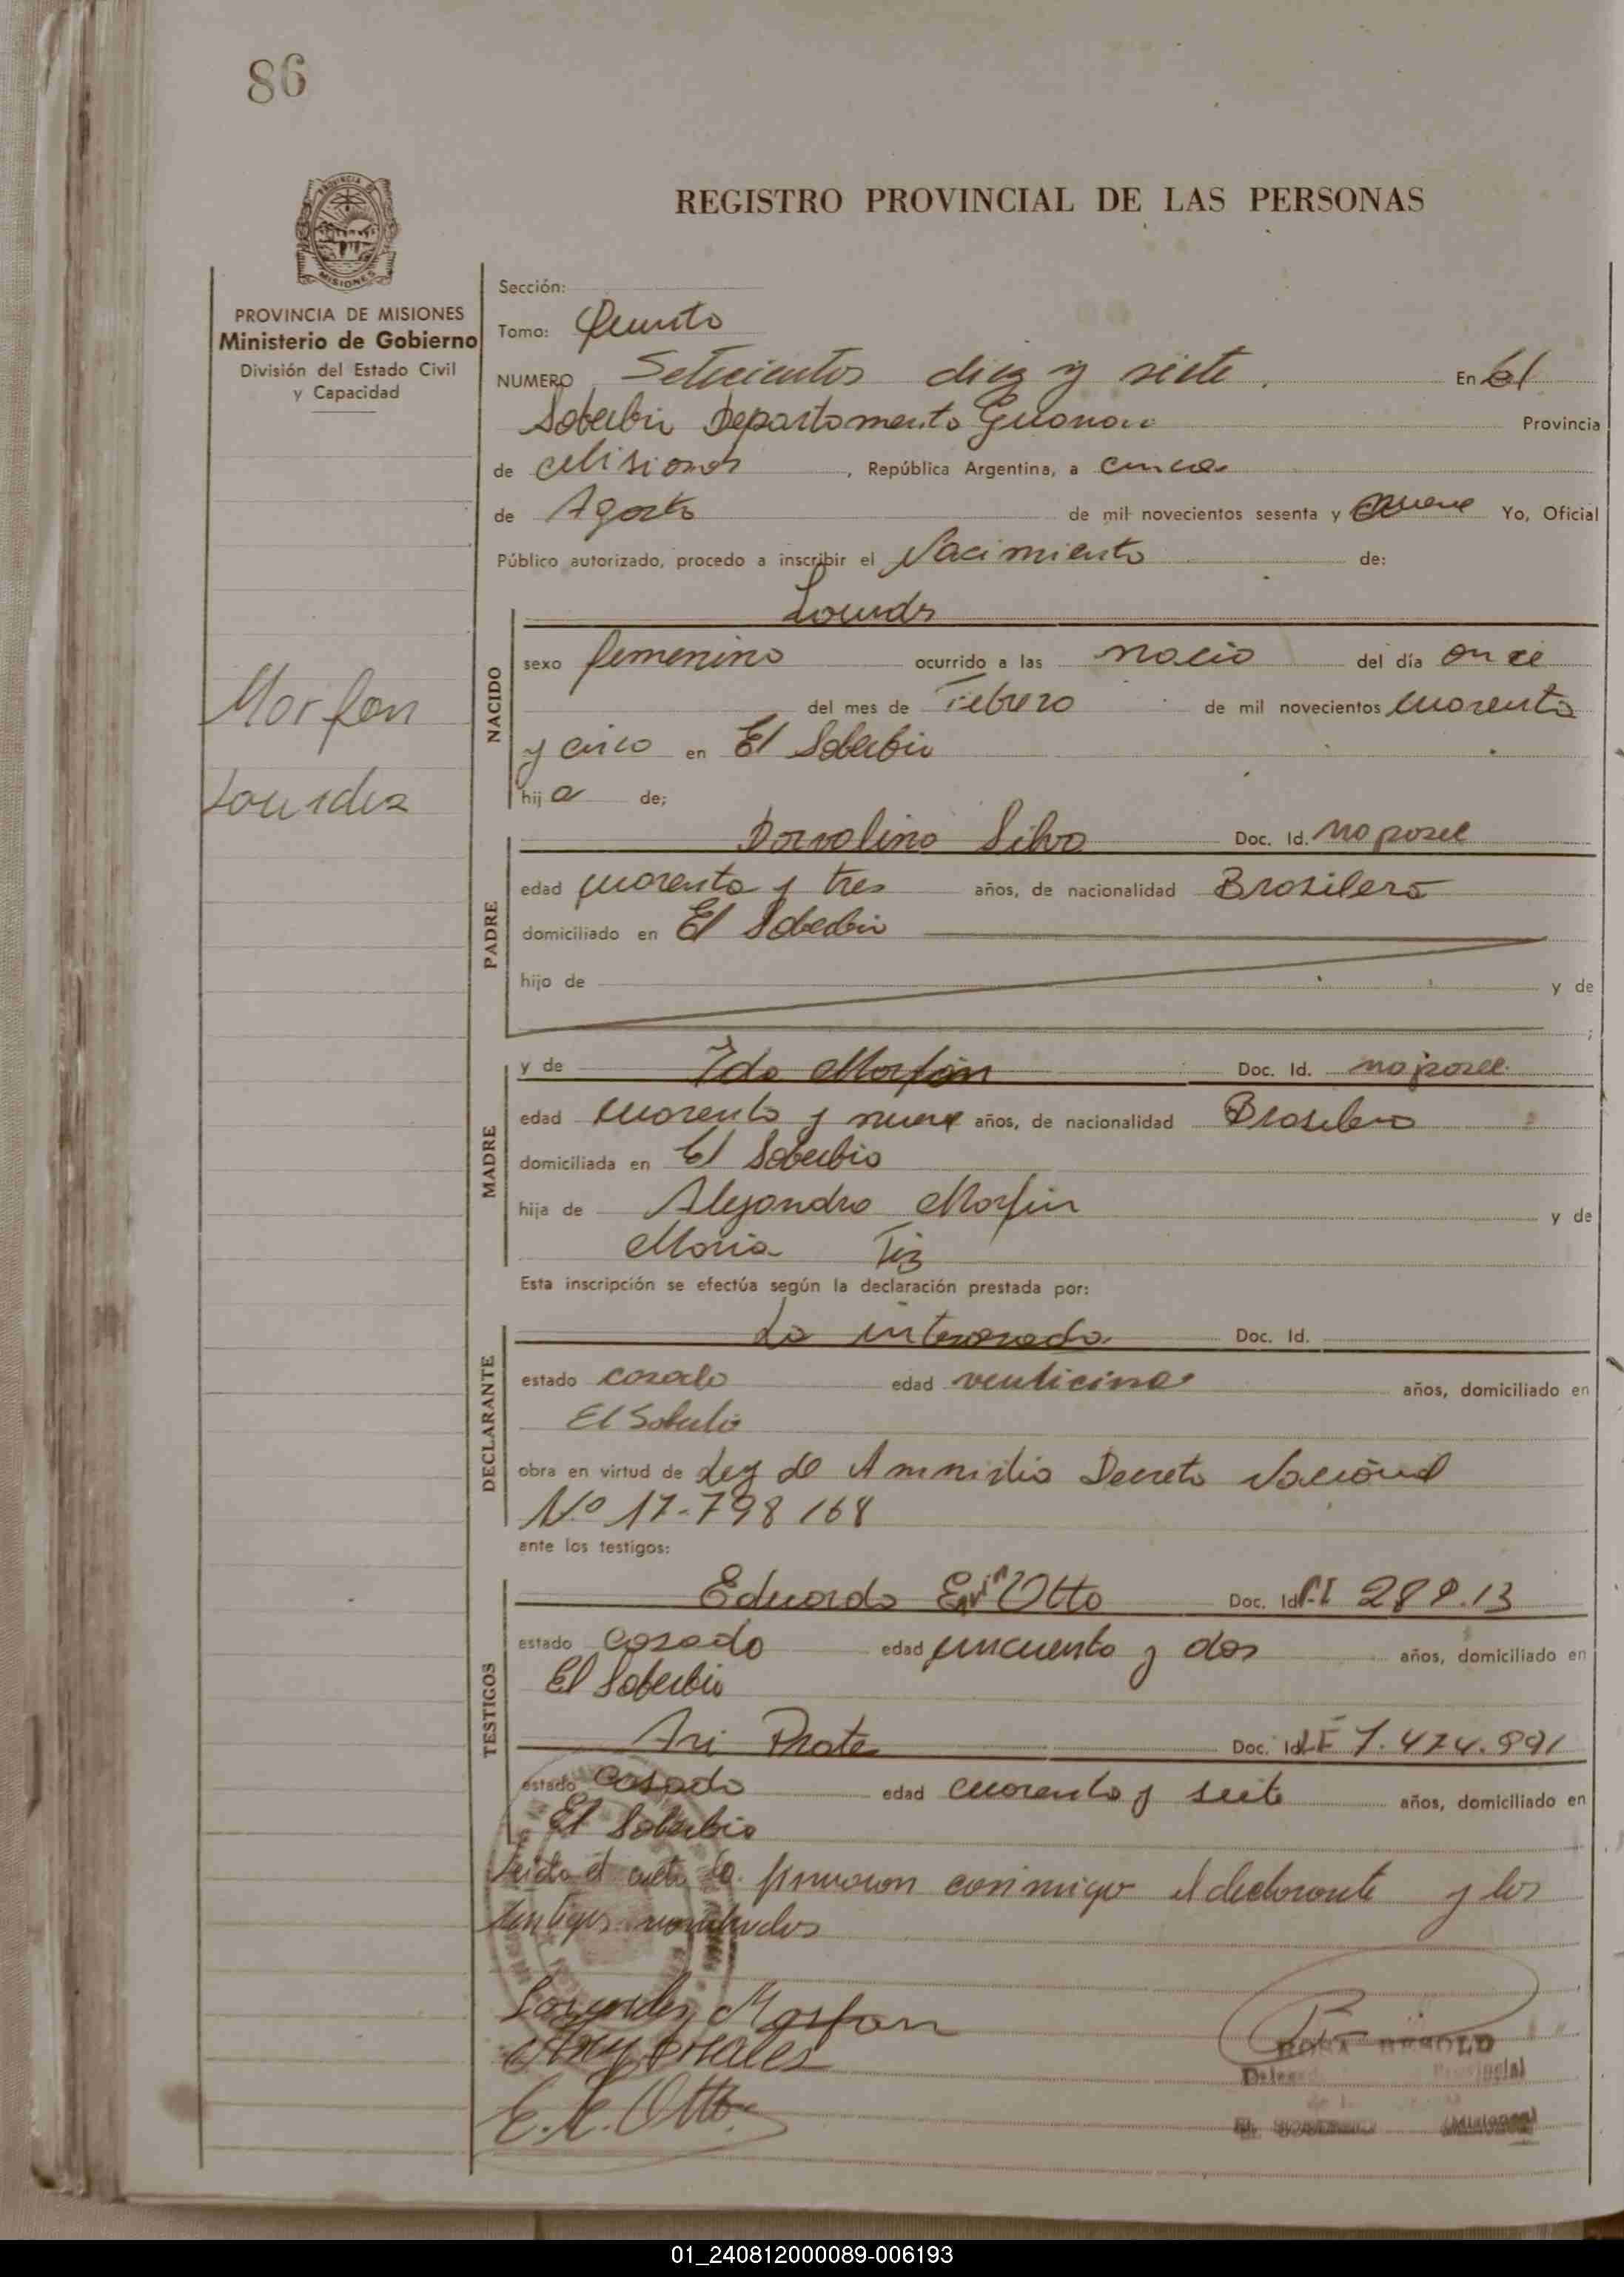 86
REGISTRO PROVINCIAL DE LAS PERSONAS
PROVINCIA DE MISIONES
Ministerio de Gobierno
División del Estado Civil
y Capacidad
Morfon
Lourdes
Sección:
Tomo: Quinto
NUMERO Setecientos diez y siete. En El
Soberbio Departamento Guarani Provincia
de Misiones, República Argentina, a cinco
de Agosto de mil novecientos sesenta y nueve Yo, Oficial
Público autorizado, procedo a inscribir el Nacimiento de:
NACIDO
Lourdes
sexo femenino ocurrido a las nacio del día once
del mes de Febrero de mil novecientos cuarenta
y cinco en El Soberbio
hija de;
PADRE
Dorvalino Silva Doc. Id. no posee
edad cuarenta y tres años, de nacionalidad Brasilera
domiciliado en El Soberbio
hijo de y de
MADRE
y de Ida Morfon Doc. Id. no posee
edad cuarenta y nueve años, de nacionalidad Brasilera
domiciliada en El Soberbio
hija de Alejandro Morfin y de
Maria
Esta inscripción se efectúa según la declaración prestada por:
DECLARANTE
La interesada Doc. Id.
estado casado edad venticinco años, domiciliado en
El Soberbio
obra en virtud de Ley de Amnistia Decreto Nacional
Nº 17-798 168
ante los testigos:
TESTIGOS
Eduardo Ervin Otto Doc. Id. C.I 288.13
estado casado edad cincuenta y dos años, domiciliado en
El Soberbio
Ari Prates Doc. Id. LE 7.474.991
estado casado edad cuarenta y siete años, domiciliado en
El Soberbio
Leida el acta la firmaron conmigo el declarante y los
testigos nombrados
Lourdes Morfon
E. E. Otto
EL SOBERBIO (Misiones)
01_240812000089-006193